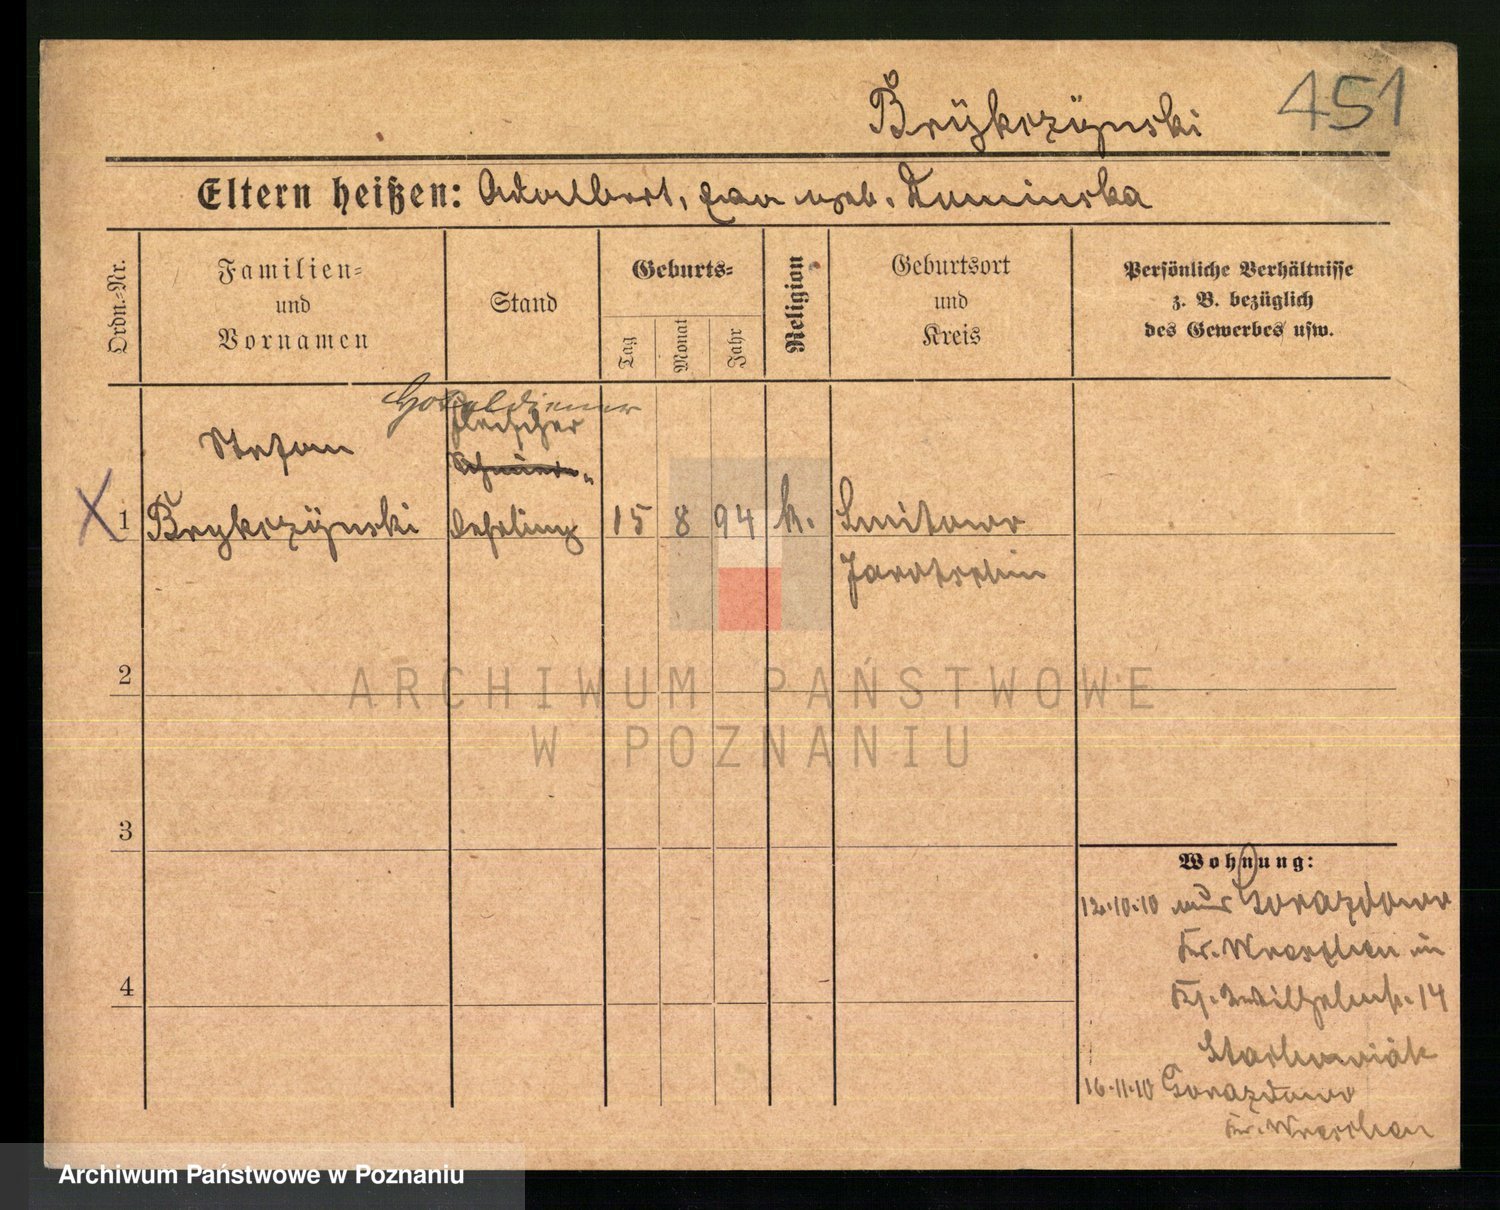 Brykczynski 451
Eltern heißen: Adalbert, geb. Kaminska
Ordn.-Nr.
Familien-
und
Vornamen
Stand
Geburts-
Tag
Monat
Jahr
Religion
Geburtsort
und
Kreis
Persönliche Verhältnisse
z. B. bezüglich
des Gewerbes usw.
Hoteldiener
Fleischer
Stefan
X 1 Brykczynski Lehrling 15 8 94 k.
Jarotschin
2
3
4
ARCHIWUM PAŃSTWOWE
W POZNANIU
Wohnung:
12.10.10 aus Gorazdowo
Kr. Wreschen in
14
16.11.10 Gorazdowo
Kr. Wreschen
Archiwum Państwowe w Poznaniu